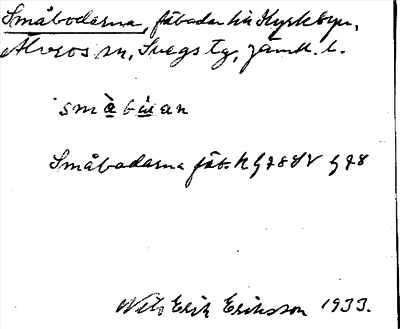 Småbodarna, fäbodar till Kyrkbyn,
Älvros sn, Svegs tg, Jämtl. l.
småbùan
Småbodarna fäb. h G78SV G78
Nils Erik Eriksson 1933.